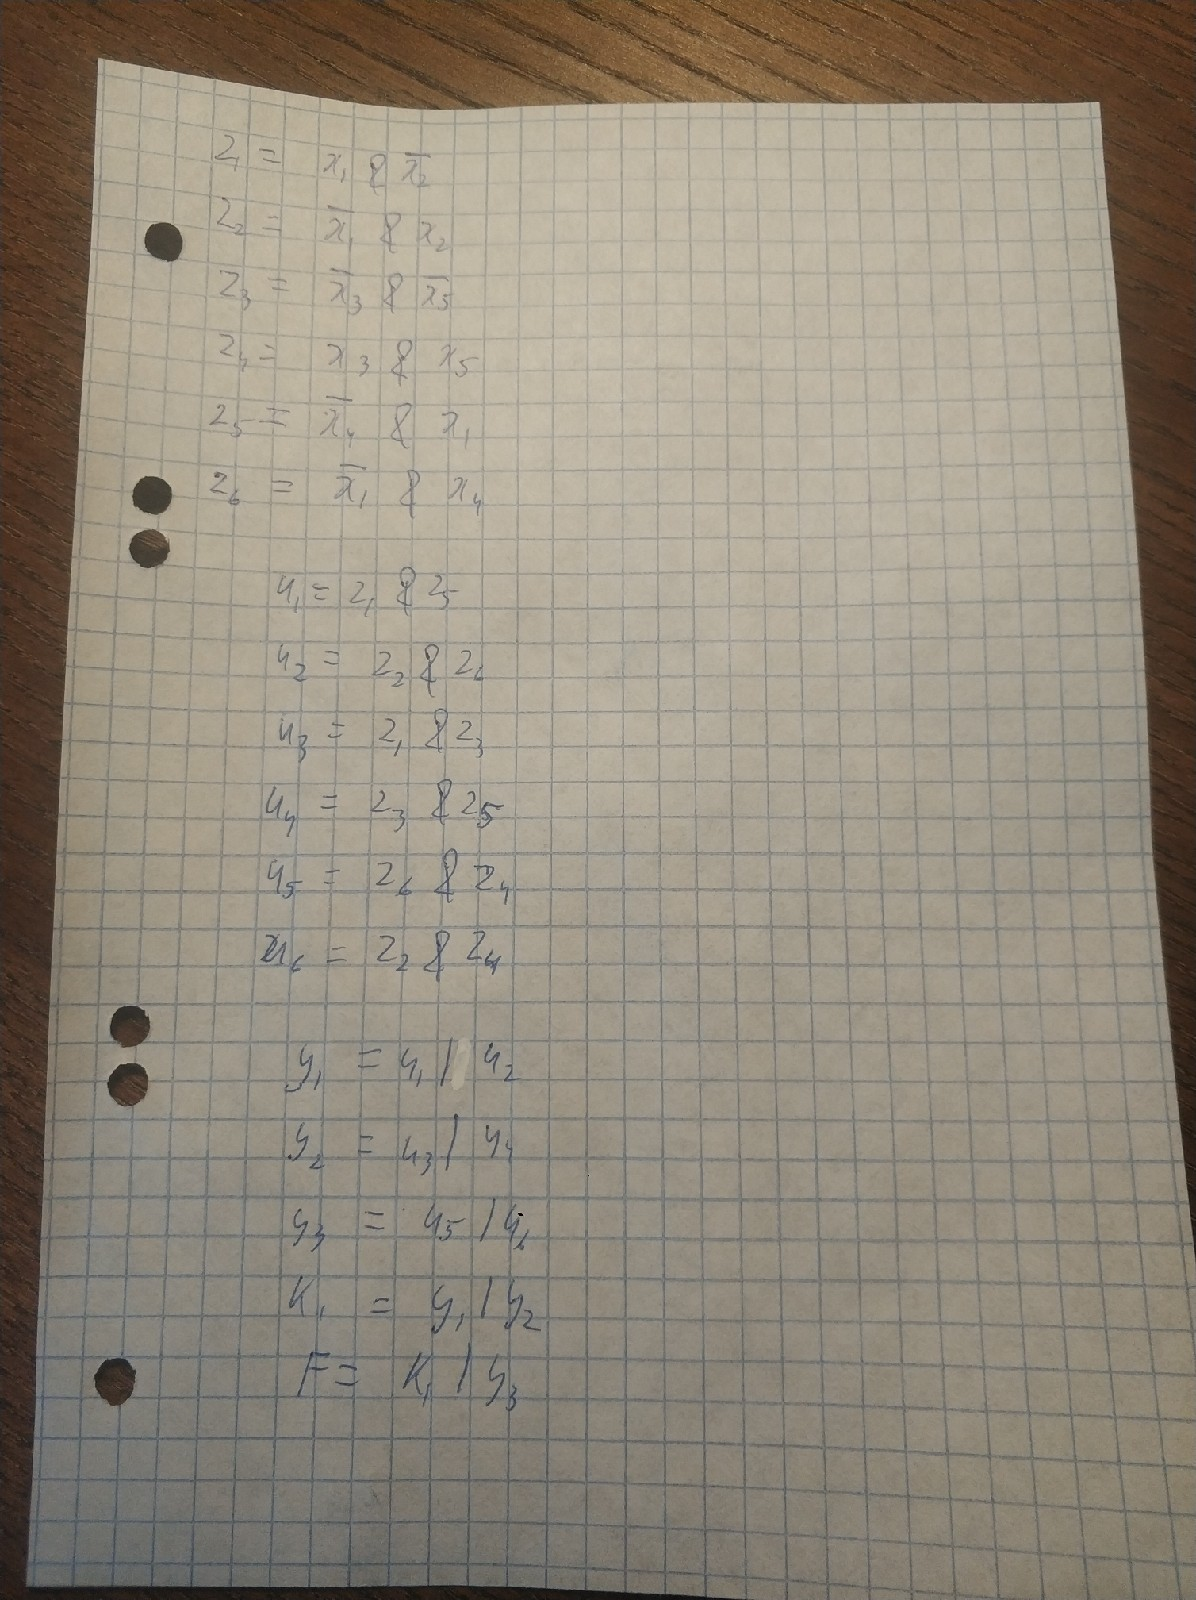 z₁ = x₁ & x̅₂
z₂ = x̅₁ & x₂
z₃ = x̅₃ & x̅₅
z₄ = x₃ & x₅
z₅ = x̅₄ & x₁
z₆ = x̅₁ & x₄
u₁ = z₁ & z₅
u₂ = z₂ & z₆
u₃ = z₁ & z₃
u₄ = z₃ & z₅
u₅ = z₆ & z₄
u₆ = z₂ & z₄
y₁ = u₁ | u₂
y₂ = u₃ | u₄
y₃ = u₅ | u₆
K₁ = y₁ | y₂
F = K₁ | y₃